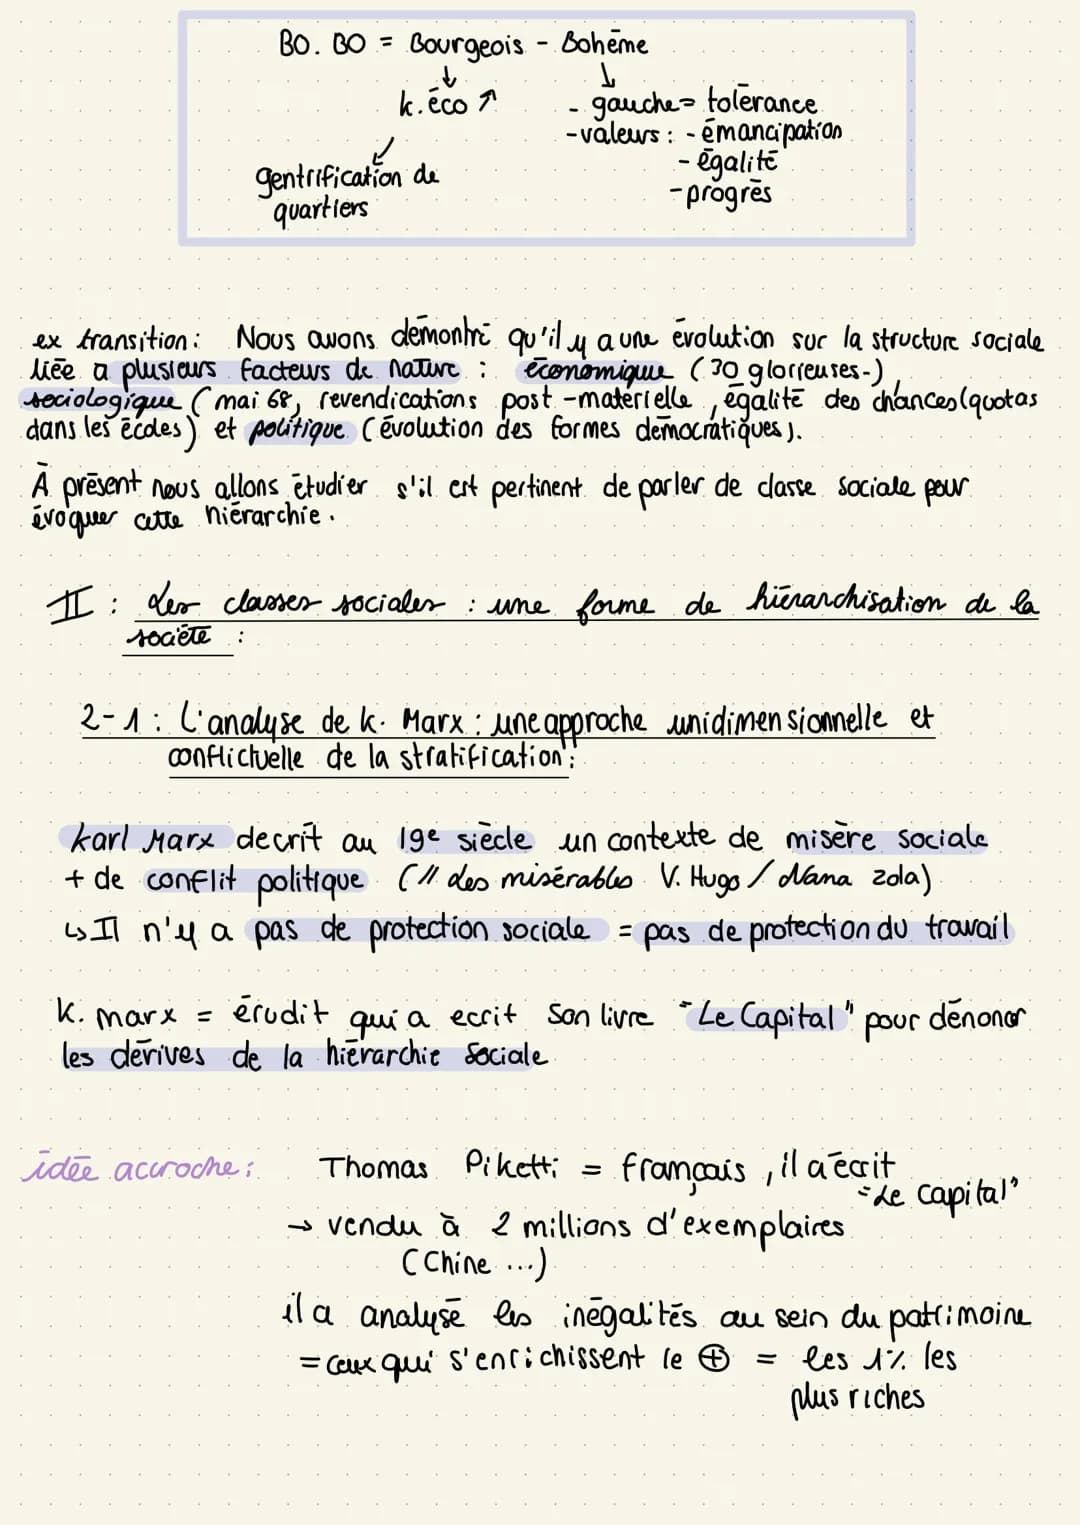 BO. BO = Bourgeois - Bohème
k. éco ↗
- gauche = tolérance
- valeurs : - émancipation
- égalité
- progrès
gentrification de
quartiers
ex transition : Nous avons démontré qu'il y a une évolution sur la structure sociale
liée a plusieurs facteurs de nature : économique (30 glorieuses-),
sociologique (mai 68, revendications post-materielle, égalité des chances (quotas
dans les écoles) et politique (évolution des formes démocratiques).
À présent nous allons étudier s'il est pertinent de parler de classe sociale pour
évoquer cette hiérarchie.
II : Les classes sociales : une forme de hiérarchisation de la
société :
2-1 : L'analyse de k. Marx : une approche unidimensionnelle et
conflictuelle de la stratification :
karl Marx decrit au 19e siècle un contexte de misère sociale
+ de conflit politique (// des misérables V. Hugo / Nana Zola)
↳ Il n'y a pas de protection sociale = pas de protection du travail
K. marx = érudit qui a ecrit son livre "Le Capital" pour dénoncer
les dérives de la hiérarchie sociale
idée accroche : Thomas Piketti = français, il a écrit
"Le capital"
→ vendu à 2 millions d'exemplaires
(Chine ...)
il a analysé les inégalités au sein du patrimoine
= ceux qui s'enrichissent le ⊕ = les 1% les
plus riches